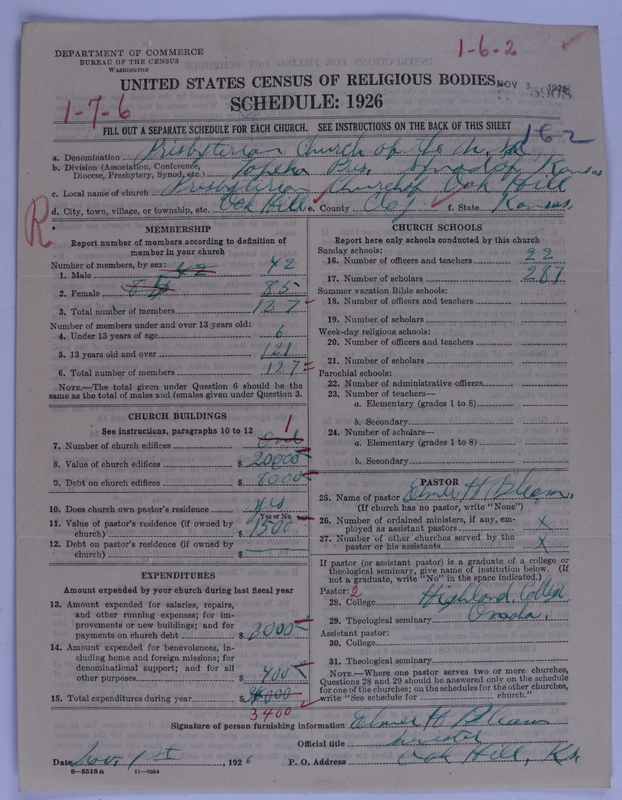 DEPARTMENT OF COMMERCE
BUREAU OF THE CENSUS
WASHINGTON
1-6-2
UNITED STATES CENSUS OF RELIGIOUS BODIES
NOV 3 1926
5908
1-7-6
SCHEDULE: 1926
FILL OUT A SEPARATE SCHEDULE FOR EACH CHURCH. SEE INSTRUCTIONS ON THE BACK OF THIS SHEET
162
a. Denomination Presbyterian Church of the
b. Division (Association, Conference, Diocese, Presbytery, Synod, etc.) Topeka Pres. Synod of Kansas
c. Local name of church Presbyterian Church of Oak Hill
d. City, town, village, or township, etc. Oak Hill e. County Clay f. State Kansas
R
MEMBERSHIP
Report number of members according to definition of
member in your church
Number of members, by sex:
1. Male 42 42
2. Female 85
3. Total number of members 127
Number of members under and over 13 years old:
4. Under 13 years of age 6
5. 13 years old and over 121
6. Total number of members 127
NOTE.—The total given under Question 6 should be the
same as the total of males and females given under Question 3.
CHURCH BUILDINGS
See instructions, paragraphs 10 to 12
7. Number of church edifices One 1
8. Value of church edifices $ 20000
9. Debt on church edifices $ 8000
10. Does church own pastor's residence yes
Yes or No
11. Value of pastor's residence (if owned by
church) $ 1500
12. Debt on pastor's residence (if owned by
church) $
EXPENDITURES
Amount expended by your church during last fiscal year
13. Amount expended for salaries, repairs,
and other running expenses; for im-
provements or new buildings; and for
payments on church debt $ 3000
14. Amount expended for benevolences, in-
cluding home and foreign missions; for
denominational support; and for all
other purposes $ 400
15. Total expenditures during year $
3400
CHURCH SCHOOLS
Report here only schools conducted by this church
Sunday schools:
16. Number of officers and teachers 22
17. Number of scholars 287
Summer vacation Bible schools:
18. Number of officers and teachers
19. Number of scholars
Week-day religious schools:
20. Number of officers and teachers
21. Number of scholars
Parochial schools:
22. Number of administrative officers
23. Number of teachers—
a. Elementary (grades 1 to 8)
b. Secondary
24. Number of scholars—
a. Elementary (grades 1 to 8)
b. Secondary
PASTOR
25. Name of pastor Elmer H. Bleam
(If church has no pastor, write "None")
26. Number of ordained ministers, if any, em-
ployed as assistant pastors x
27. Number of other churches served by the
pastor or his assistants x
If pastor (or assistant pastor) is a graduate of a college or
theological seminary, give name of institution below. (If
not a graduate, write "No" in the space indicated.)
Pastor: 2
28. College Highland College
29. Theological seminary Omaha.
Assistant pastor:
30. College
31. Theological seminary
NOTE.—Where one pastor serves two or more churches,
Questions 28 and 29 should be answered only on the schedule
for one of the churches; on the schedules for the other churches,
write "See schedule for church."
Signature of person furnishing information Elmer H. Bleam
Official title Minister
Date Nov. 1st, 1926 P. O. Address Oak Hill, Ks.
8—5518a 11—9084